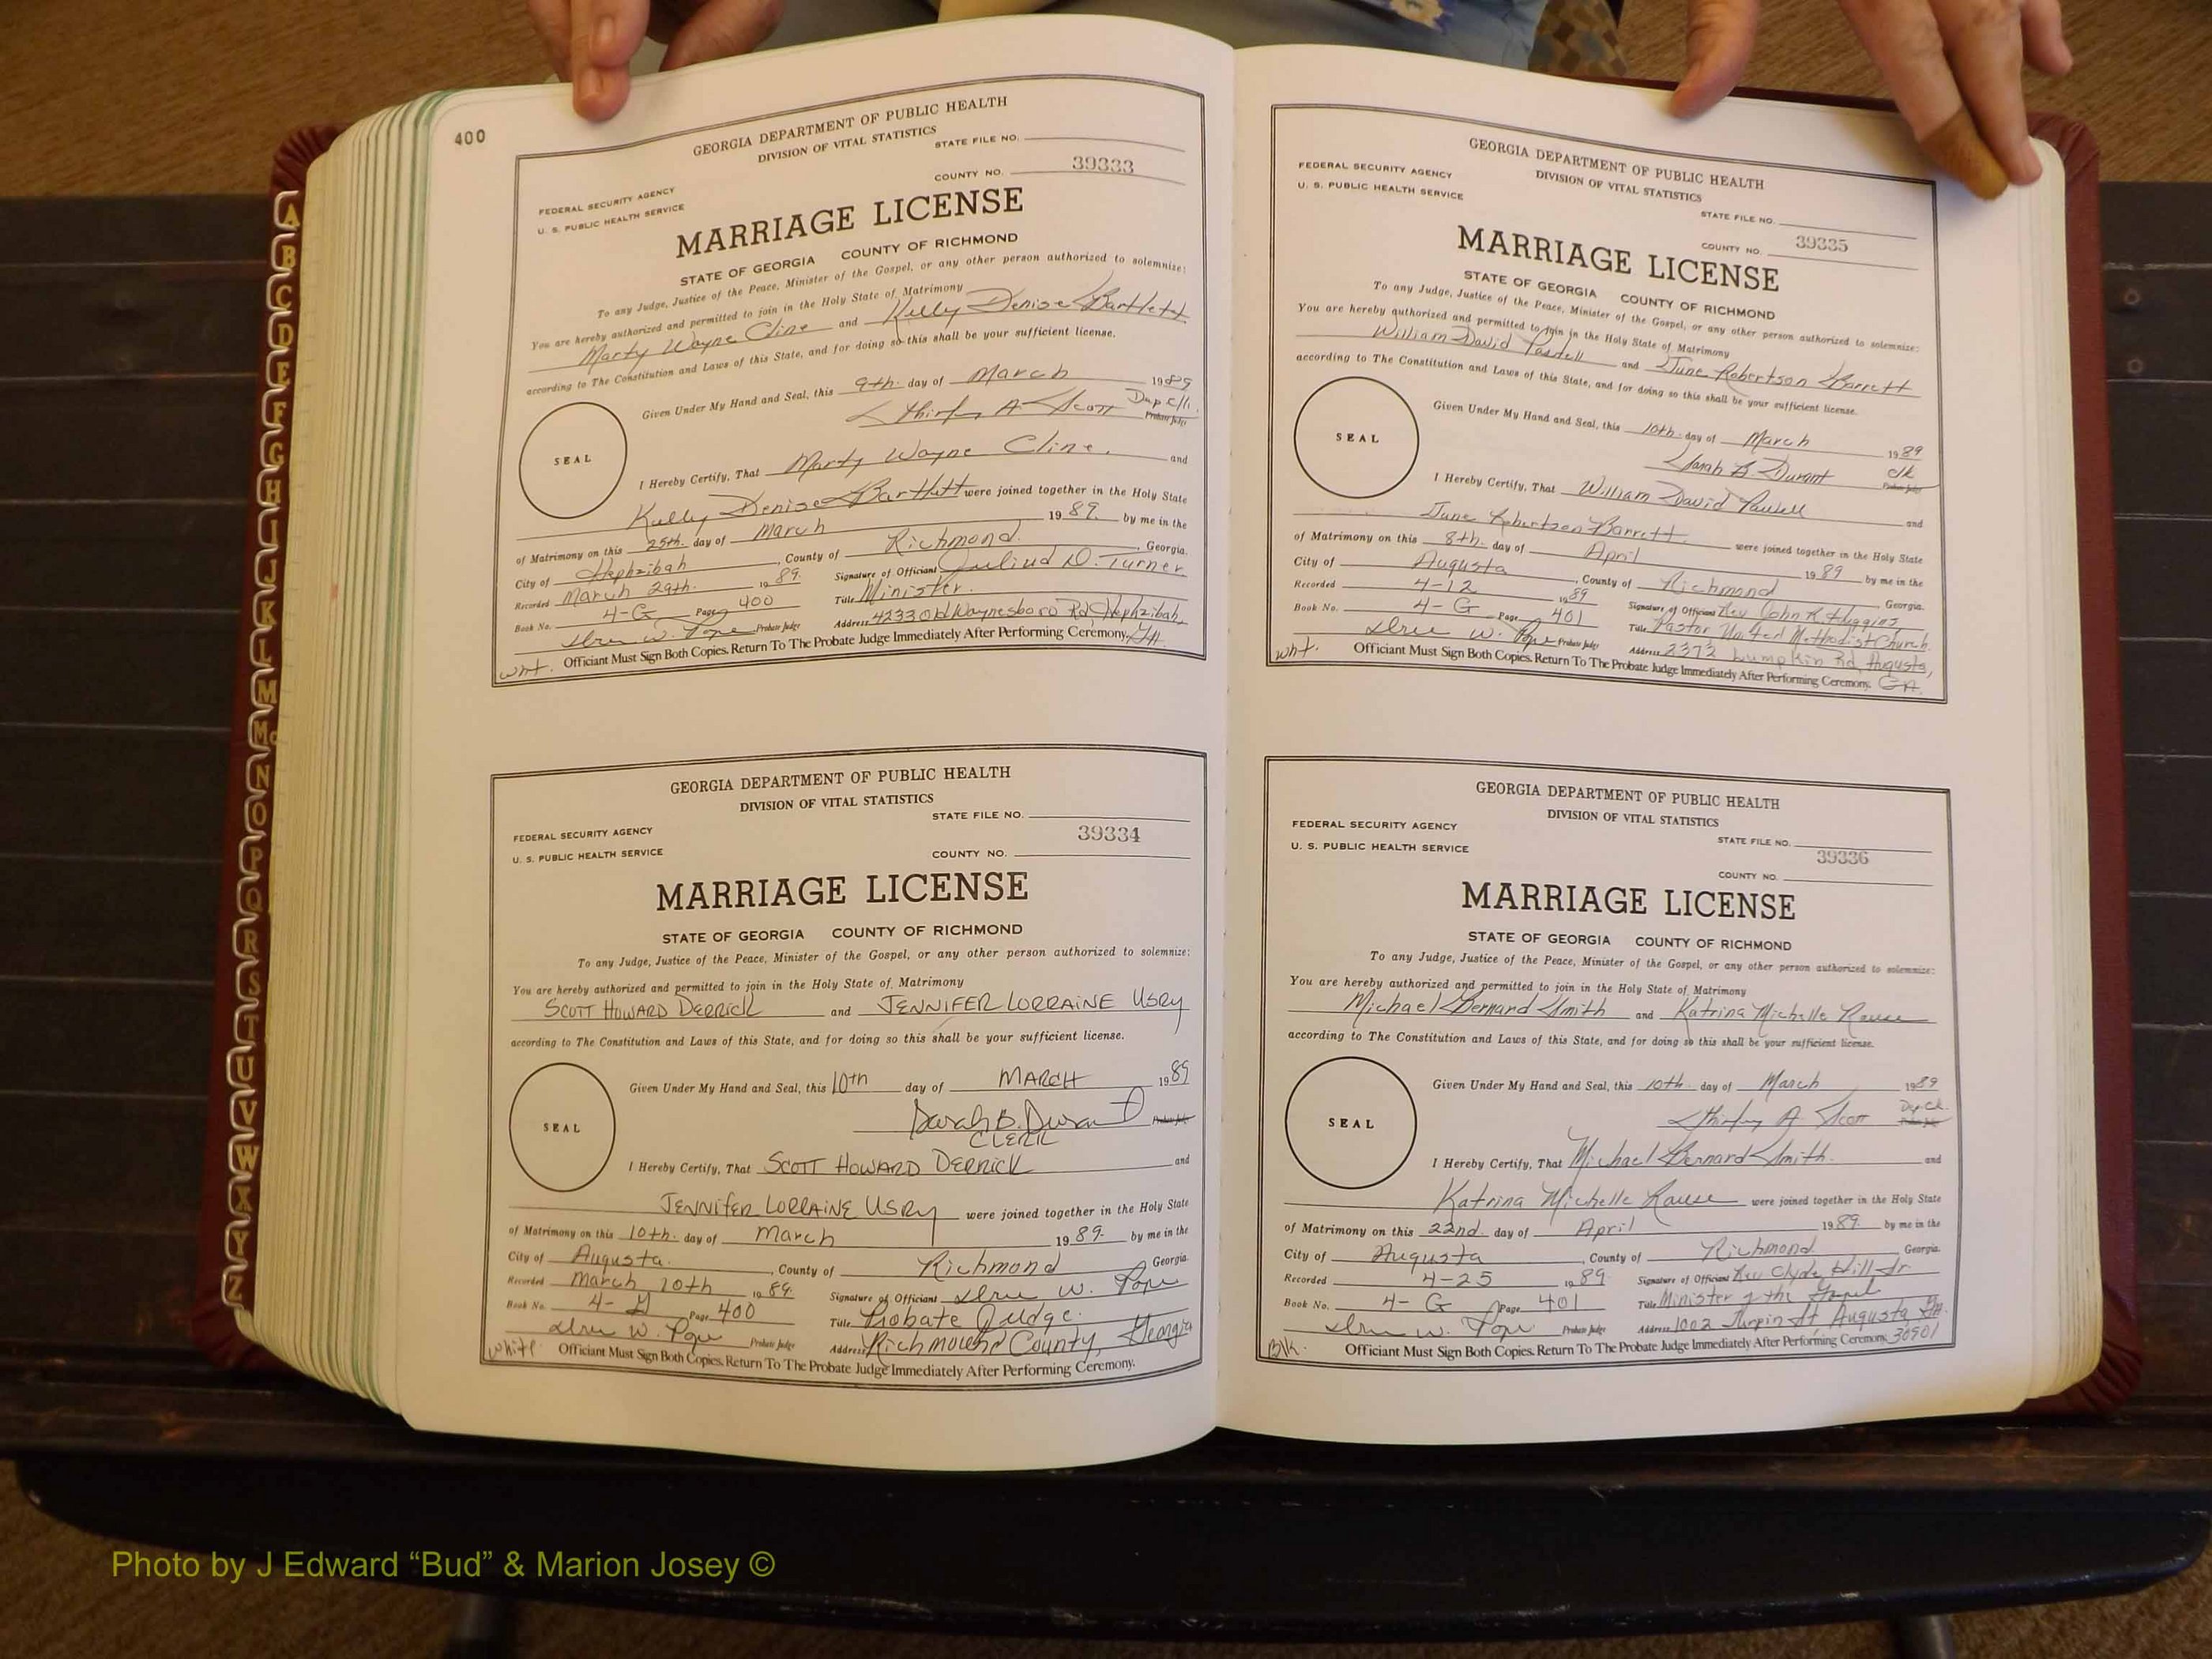 400
GEORGIA DEPARTMENT OF PUBLIC HEALTH
DIVISION OF VITAL STATISTICS
STATE FILE NO.
39333
COUNTY NO.
FEDERAL SECURITY AGENCY
U. S. PUBLIC HEALTH SERVICE
MARRIAGE LICENSE
STATE OF GEORGIA COUNTY OF RICHMOND
To any Judge, Justice of the Peace, Minister of the Gospel, or any other person authorized to solemnize:
You are hereby authorized and permitted to join in the Holy State of Matrimony
Marty Wayne Cline and Kelly Denise Bartlett
according to The Constitution and Laws of this State, and for doing so this shall be your sufficient license.
Given Under My Hand and Seal, this 9th. day of March 1989
Shirley A Scott Probate Judge
SEAL
I Hereby Certify, That Marty Wayne Cline. and
Kelly Denise Bartlett were joined together in the Holy State
of Matrimony on this 25th. day of March 1989. by me in the
City of Hephzibah, County of Richmond. Georgia.
Recorded March 29th. 1989. Signature of Officiant D. Turner
Book No. 4-G Page 400 Title Minister.
W. Pope Probate Judge Address 4233 Old Waynesboro Rd, Hephzibah, GA.
wht. Officiant Must Sign Both Copies. Return To The Probate Judge Immediately After Performing Ceremony.
GEORGIA DEPARTMENT OF PUBLIC HEALTH
DIVISION OF VITAL STATISTICS
STATE FILE NO.
39334
FEDERAL SECURITY AGENCY
U. S. PUBLIC HEALTH SERVICE
COUNTY NO.
MARRIAGE LICENSE
STATE OF GEORGIA COUNTY OF RICHMOND
To any Judge, Justice of the Peace, Minister of the Gospel, or any other person authorized to solemnize:
You are hereby authorized and permitted to join in the Holy State of Matrimony
SCOTT HOWARD DERRICK and JENNIFER LORRAINE USRY
according to The Constitution and Laws of this State, and for doing so this shall be your sufficient license.
Given Under My Hand and Seal, this 10th day of MARCH 1989
Sarah B. Durant Probate Judge
CLERK
SEAL
I Hereby Certify, That SCOTT HOWARD DERRICK and
JENNIFER LORRAINE USRY were joined together in the Holy State
of Matrimony on this 10th. day of March 1989. by me in the
City of Augusta. County of Richmond Georgia.
Recorded March 10th 1989. Signature of Officiant W. Pope
Book No. 4-G Page 400 Title Probate Judge.
W. Pope Probate Judge Address Richmond County, Georgia
white Officiant Must Sign Both Copies. Return To The Probate Judge Immediately After Performing Ceremony.
GEORGIA DEPARTMENT OF PUBLIC HEALTH
DIVISION OF VITAL STATISTICS
FEDERAL SECURITY AGENCY
U. S. PUBLIC HEALTH SERVICE
STATE FILE NO.
COUNTY NO. 39335
MARRIAGE LICENSE
STATE OF GEORGIA COUNTY OF RICHMOND
To any Judge, Justice of the Peace, Minister of the Gospel, or any other person authorized to solemnize:
You are hereby authorized and permitted to join in the Holy State of Matrimony
William David and June Robertson Barrett
according to The Constitution and Laws of this State, and for doing so this shall be your sufficient license.
Given Under My Hand and Seal, this 10th. day of March 1989
Sarah B Durant Clk Probate Judge
SEAL
I Hereby Certify, That William David and
June Robertson Barrett. were joined together in the Holy State
of Matrimony on this 8th. day of April 1989 by me in the
City of Augusta, County of Richmond Georgia.
Recorded 4-12 1989 Signature of Officiant Rev John R Huggins
Book No. 4-G Page 401 Title Pastor United Methodist Church.
W. Pope Probate Judge Address 2372 Lumpkin Rd, Augusta, Ga.
wht. Officiant Must Sign Both Copies. Return To The Probate Judge Immediately After Performing Ceremony.
GEORGIA DEPARTMENT OF PUBLIC HEALTH
DIVISION OF VITAL STATISTICS
FEDERAL SECURITY AGENCY
U. S. PUBLIC HEALTH SERVICE
STATE FILE NO.
39336
COUNTY NO.
MARRIAGE LICENSE
STATE OF GEORGIA COUNTY OF RICHMOND
To any Judge, Justice of the Peace, Minister of the Gospel, or any other person authorized to solemnize:
You are hereby authorized and permitted to join in the Holy State of Matrimony
Michael Bernard Smith and Katrina Michelle Rouse
according to The Constitution and Laws of this State, and for doing so this shall be your sufficient license.
Given Under My Hand and Seal, this 10th. day of March 1989
Shirley A Scott Dep Clk. Probate Judge
SEAL
I Hereby Certify, That Michael Bernard Smith. and
Katrina Michelle Rouse were joined together in the Holy State
of Matrimony on this 22nd day of April 1989. by me in the
City of Augusta, County of Richmond Georgia.
Recorded 4-25 1989. Signature of Officiant Rev Clyde Hill Jr
Book No. 4-G Page 401 Title Minister of the Gospel
W. Pope Probate Judge Address 1002 Turpin St Augusta, Ga. 30901
Blk. Officiant Must Sign Both Copies. Return To The Probate Judge Immediately After Performing Ceremony.
A
B
C
D
E
F
G
H
I
J
K
L
M
Mc
N
O
P
Q
R
S
T
U
V
W
X
Y
Z
Photo by J Edward “Bud” & Marion Josey ©